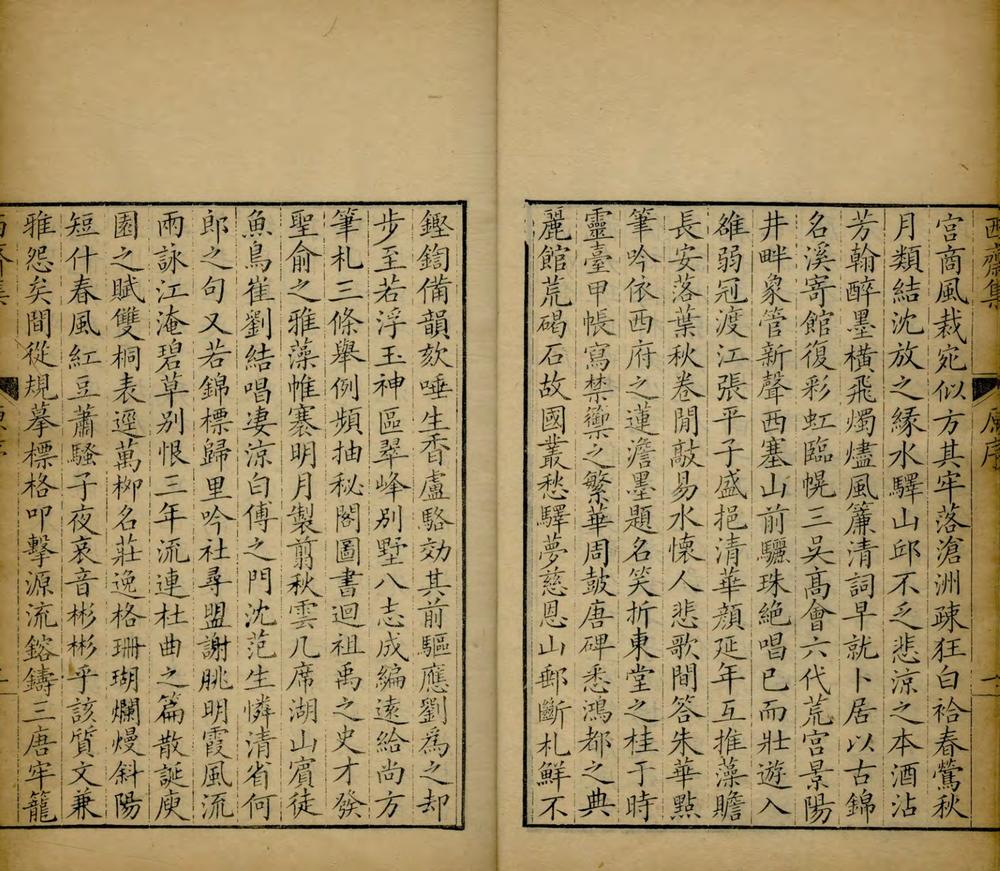 西齋集
原序
宮商風裁宛似方其牢落滄洲疎狂白袷春鶯秋
月類結沈放之緣水驛山邱不乏悲涼之本酒沾
芳翰醉墨橫飛燭燼風簾清詞早就卜居以古錦
名溪寄館復彩虹臨幌三吳高會六代荒宮景陽
井畔象管新聲西塞山前驪珠絕唱已而壯遊入
雒弱冠渡江張平子盛挹清華顏延年互推藻贍
長安落葉秋卷閒敲易水懷人悲歌間答朱華點
筆吟依西府之蓮澹墨題名笑折東堂之桂于時
靈臺甲帳寫禁籞之繁華周皷唐碑悉鴻都之典
麗館荒碣石故國叢愁驛夢慈恩山郵斷札鮮不
鏗鍧備韻欬唾生香盧駱効其前驅應劉為之却
步至若浮玉神區翠峰別墅八志成編遠給尚方
筆札三條舉例頻抽秘閣圖書迴祖禹之史才發
聖俞之雅藻帷褰明月製剪秋雲几席湖山賓徒
魚鳥崔劉結唱淒涼白傅之門沈范生憐清省何
郎之句又若錦標歸里吟社尋盟謝朓明霞風流
雨詠江淹碧草別恨三年流連杜曲之篇散誕庾
園之賦雙桐表逕萬栁名莊逸格珊瑚爛熳斜陽
短什春風紅豆蕭騷子夜哀音彬彬乎該質文兼
雅怨矣間從規摹標格叩擊源流鎔鑄三唐牢籠